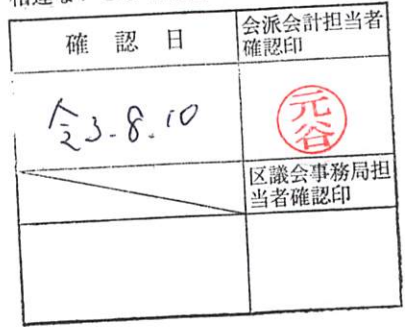 確認日
会派会計担当者
確認印
令3.8.10
元谷
区議会事務局担
当者確認印